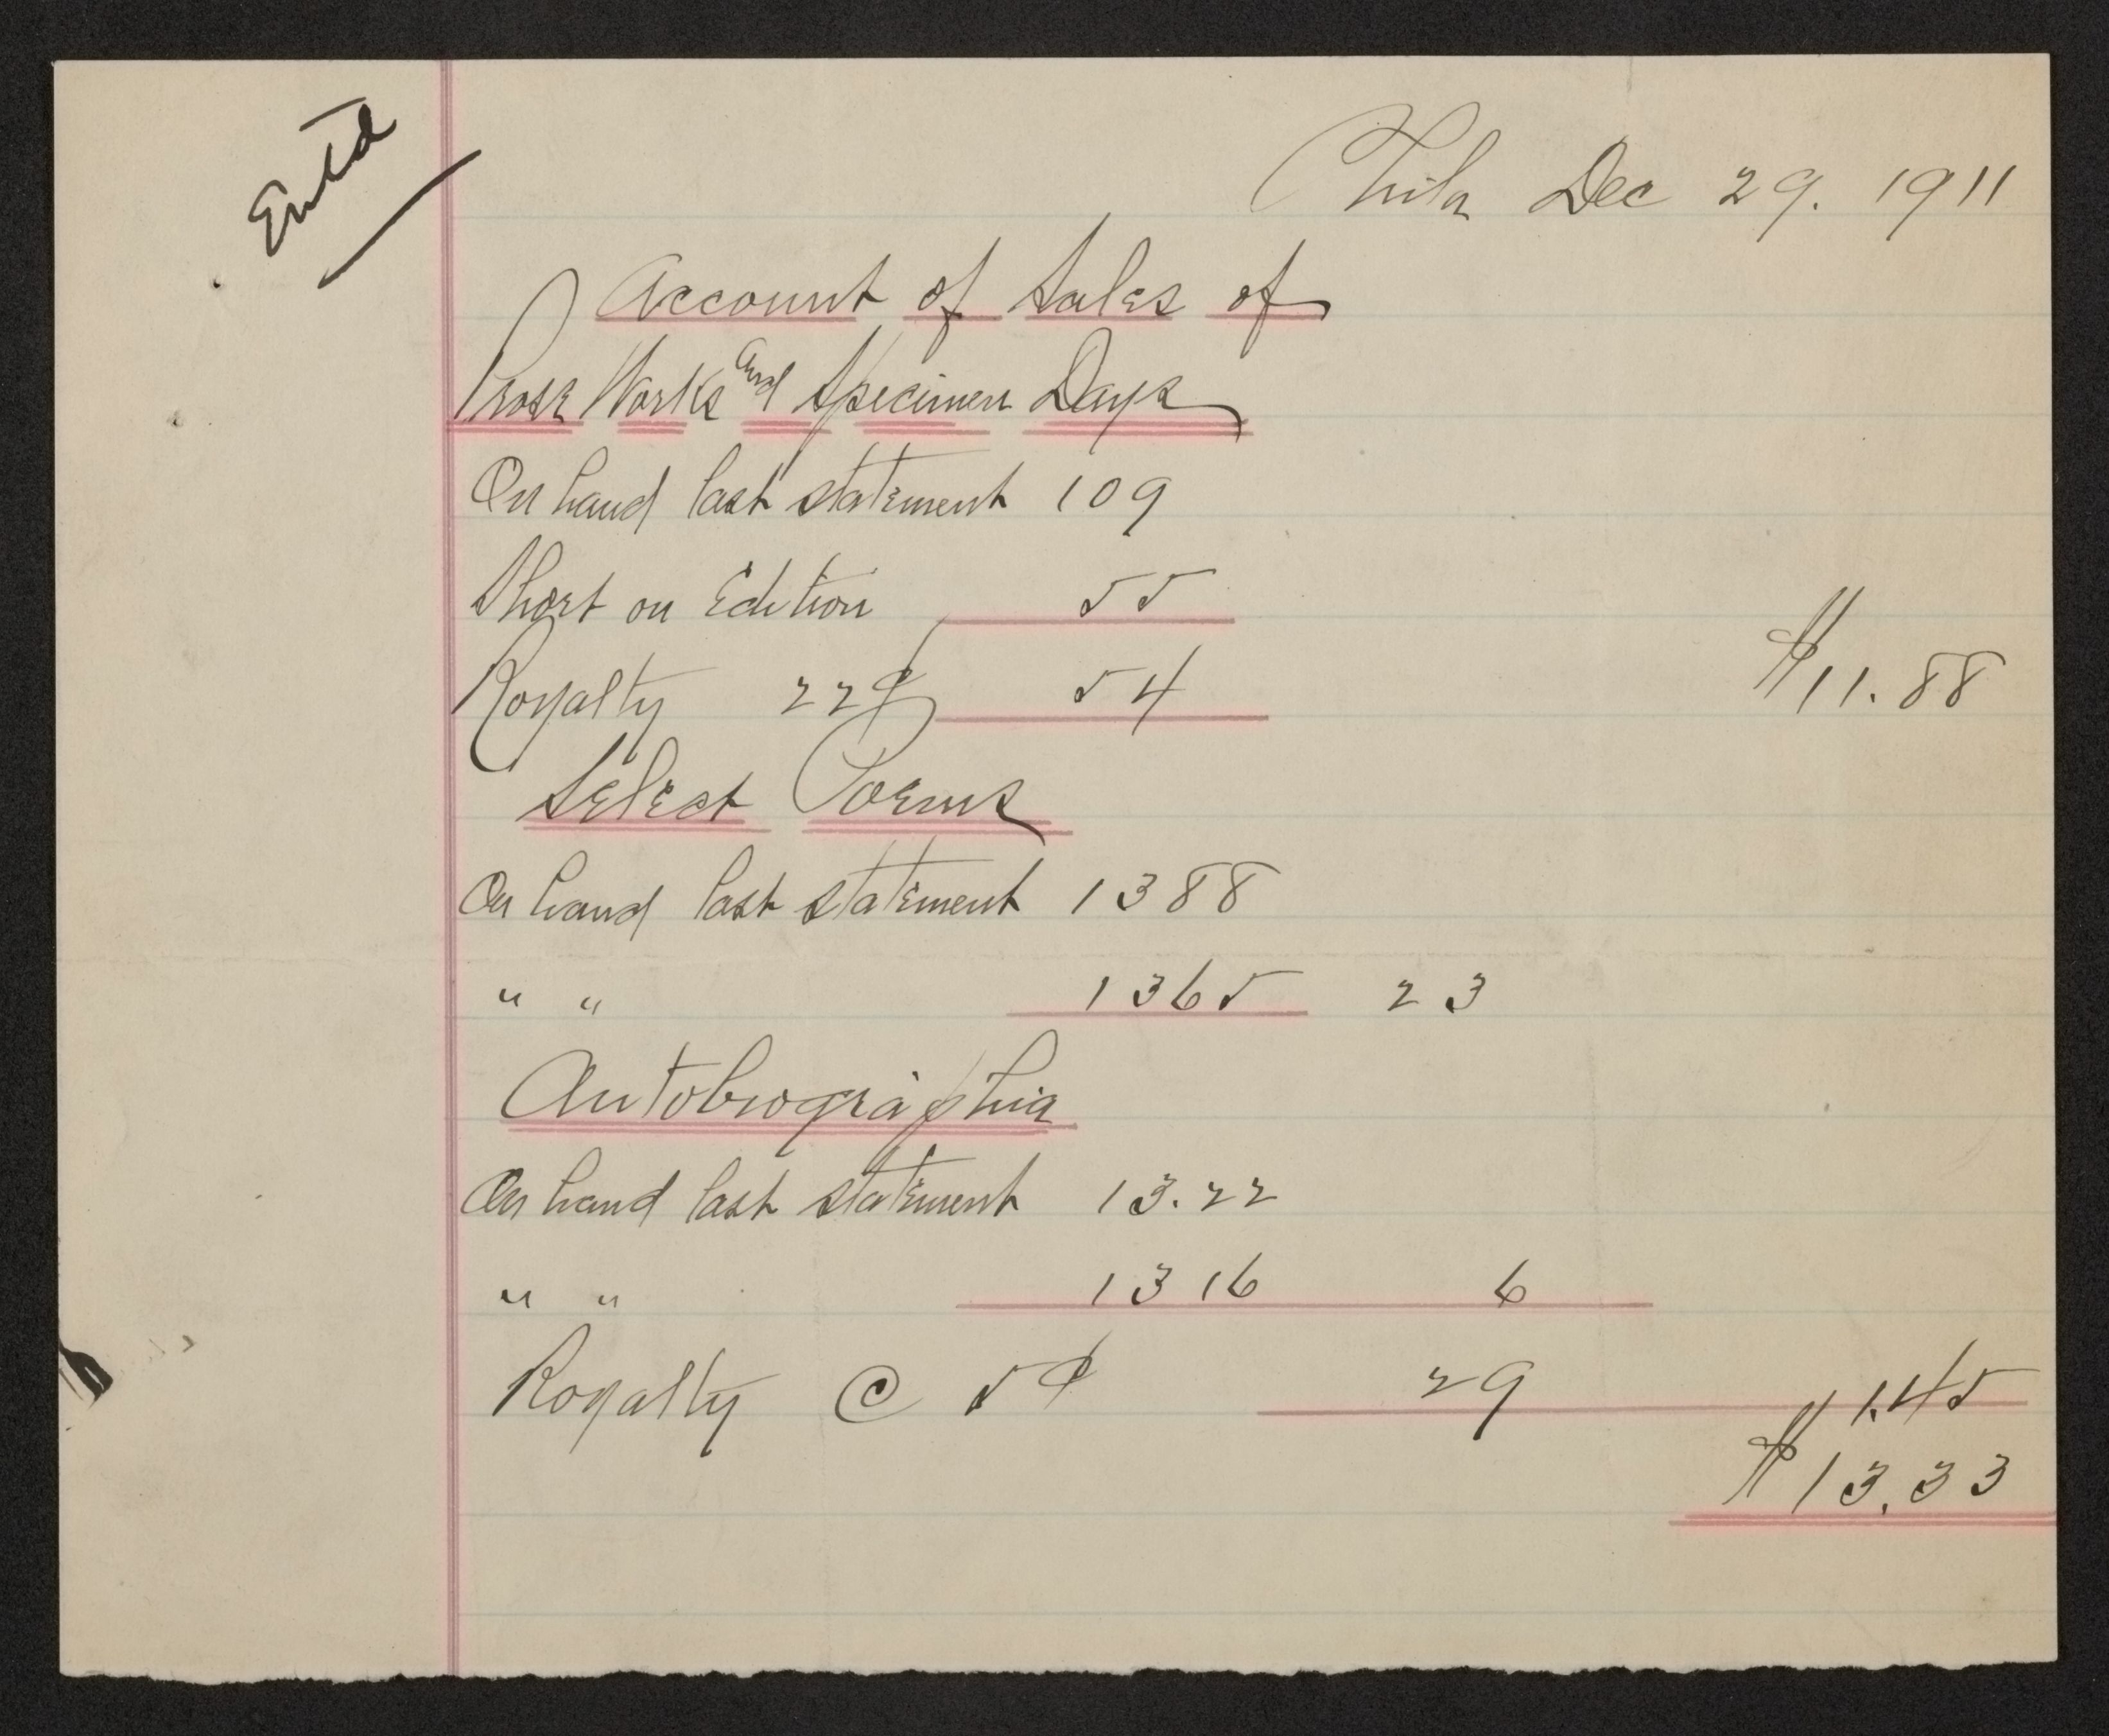 Entd
Phila Dec 29. 1911
Account of Sales of
Prose Works and Specimen Days
On hand last statement 109
Short on Edition 55
Royalty 22¢ 54 $11.88
Select Poems
On hand last statement 1388
" " 1365 23
Autobiographia
On hand last statement 13.22
" " 1316 6
Royalty @ 5¢ 29 1.45
$13.33